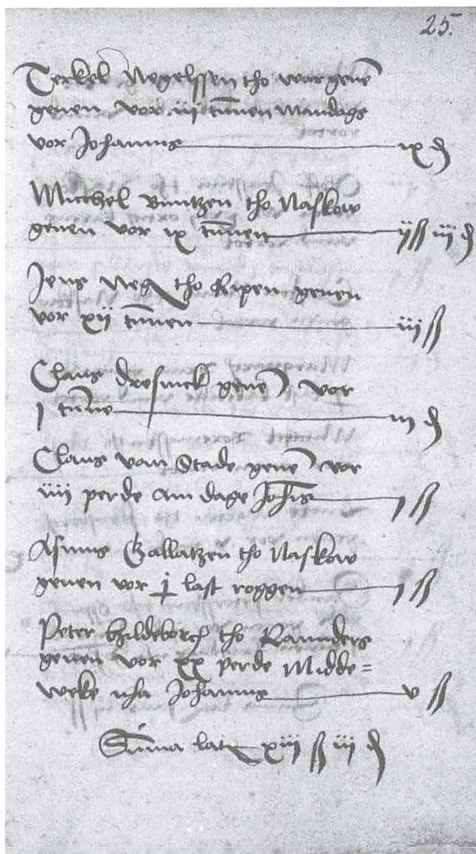 25.
Terkel Megelssen tho war geuē
geuen vor iii tūnen Mandags
vor Johannis ix ₰
Mittchel Buntzen tho Naskow
geuen vor ix tūnen ijß iij ₰
Jens tho Ripen geuen
vor xij tūnen iiij ß
Claus Dresmek geuē vor
j tūne iij ₰
Claus vam Stade geuē vor
iiij perde am dage Johīs j ß
Asmus Gallatzen tho Naskow
geuen vor last roggen j ß
Peter Hildeborch tho Rannders
geuen vor xx perde Midde=
weke nha Johannis v ß
Sūma lat xiij ß iij ₰